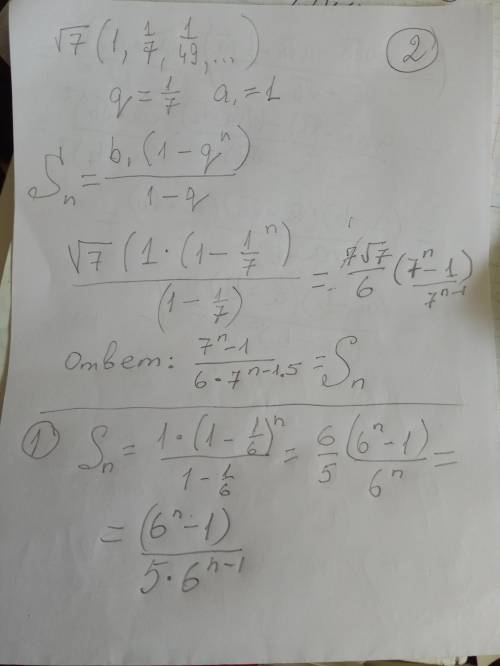 √7 (1, 1/7, 1/49, ...)
2
q = 1/7 a₁ = 1
Sₙ = b₁ (1 - qⁿ) / (1 - q)
√7 (1 · (1 - 1/7ⁿ) / (1 - 1/7) = 7√7/6 (7ⁿ - 1 / 7ⁿ⁻¹)
Ответ: 7ⁿ - 1 / 6 · 7ⁿ⁻¹·⁵ = Sₙ
1 Sₙ = 1 · (1 - 1/6)ⁿ / 1 - 1/6 = 6/5 (6ⁿ - 1) / 6ⁿ =
= (6ⁿ - 1) / 5 · 6ⁿ⁻¹